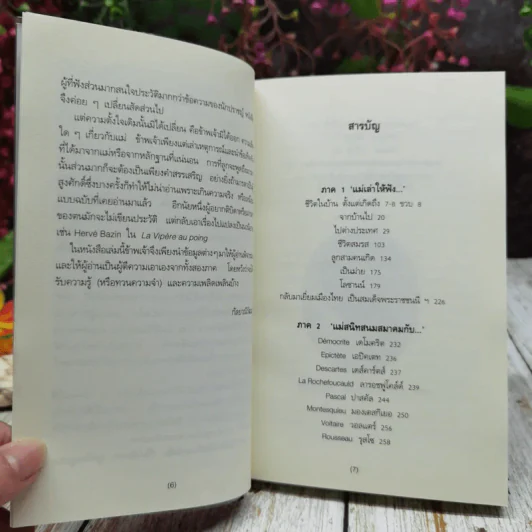 ผู้ที่ฟังส่วนมากสนใจประวัติมากกว่าข้อความของนักปราชญ์
จึงค่อย ๆ เปลี่ยนสัดส่วนไป
แต่ความตั้งใจเดิมนั้นมิได้เปลี่ยน คือข้าพเจ้ามิได้ออก
ใด ๆ เกี่ยวกับแม่ ข้าพเจ้าเพียงแต่เล่าเหตุการณ์และนำข้อ
ที่ได้มาจากแม่หรือจากหลักฐานที่แน่นอน การที่ลูกจะพูดถึง
นั้นส่วนมากก็จะต้องเป็นเพียงคำสรรเสริญ อย่างยิ่งถ้ามา
สูงศักดิ์ซึ่งบางครั้งก็ทำให้ไม่น่าอ่านเพราะเกินความจริง
แบบฉบับที่เคยอ่านมาแล้ว อีกนัยหนึ่งผู้อยากติบิดาหรือ
ของตนมักจะไม่เขียนประวัติ แต่กลับเอาเรื่องไปแปลงเป็น
เช่น Hervé Bazin ใน La Vipère au poing
ในหนังสือเล่มนี้ข้าพเจ้าจึงเพียงนำข้อมูลต่างๆมาให้ผู้อ่าน
และให้ผู้อ่านเป็นผู้ตีความเอาเองจากทั้งสองภาค โดยหวังว่า
รับความรู้ (หรือทวนความจำ) และความเพลิดเพลินบ้าง
กัลยาณิวัฒนา
(6)
สารบัญ
ภาค 1 'แม่เล่าให้ฟัง...'
ชีวิตในบ้าน ตั้งแต่เกิดถึง 7-8 ขวบ 8
จากบ้านไป 20
ไปต่างประเทศ 29
ชีวิตสมรส 103
ลูกสามคนเกิด 134
เป็นม่าย 175
โลซานน์ 179
กลับมาเยี่ยมเมืองไทย เป็นสมเด็จพระราชชนนี ฯ 226
ภาค 2 'แม่สนิทสนมสมาคมกับ...'
Démocrite เดโมคริต 232
Epictète เอปิคเตท 236
Descartes เดส์คาร์ตส์ 237
La Rochefoucauld ลารอชฟูโคล์ด์ 239
Pascal ปาสคัล 244
Montesquieu มองเตสกิเออ 250
Voltaire วอลแตร์ 256
Rousseau รุสโซ 258
(7)